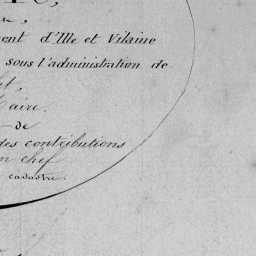 ent d'Ille et Vilaine
sous l'administration de
aire.
de
des contributions
n chef
cadastre.